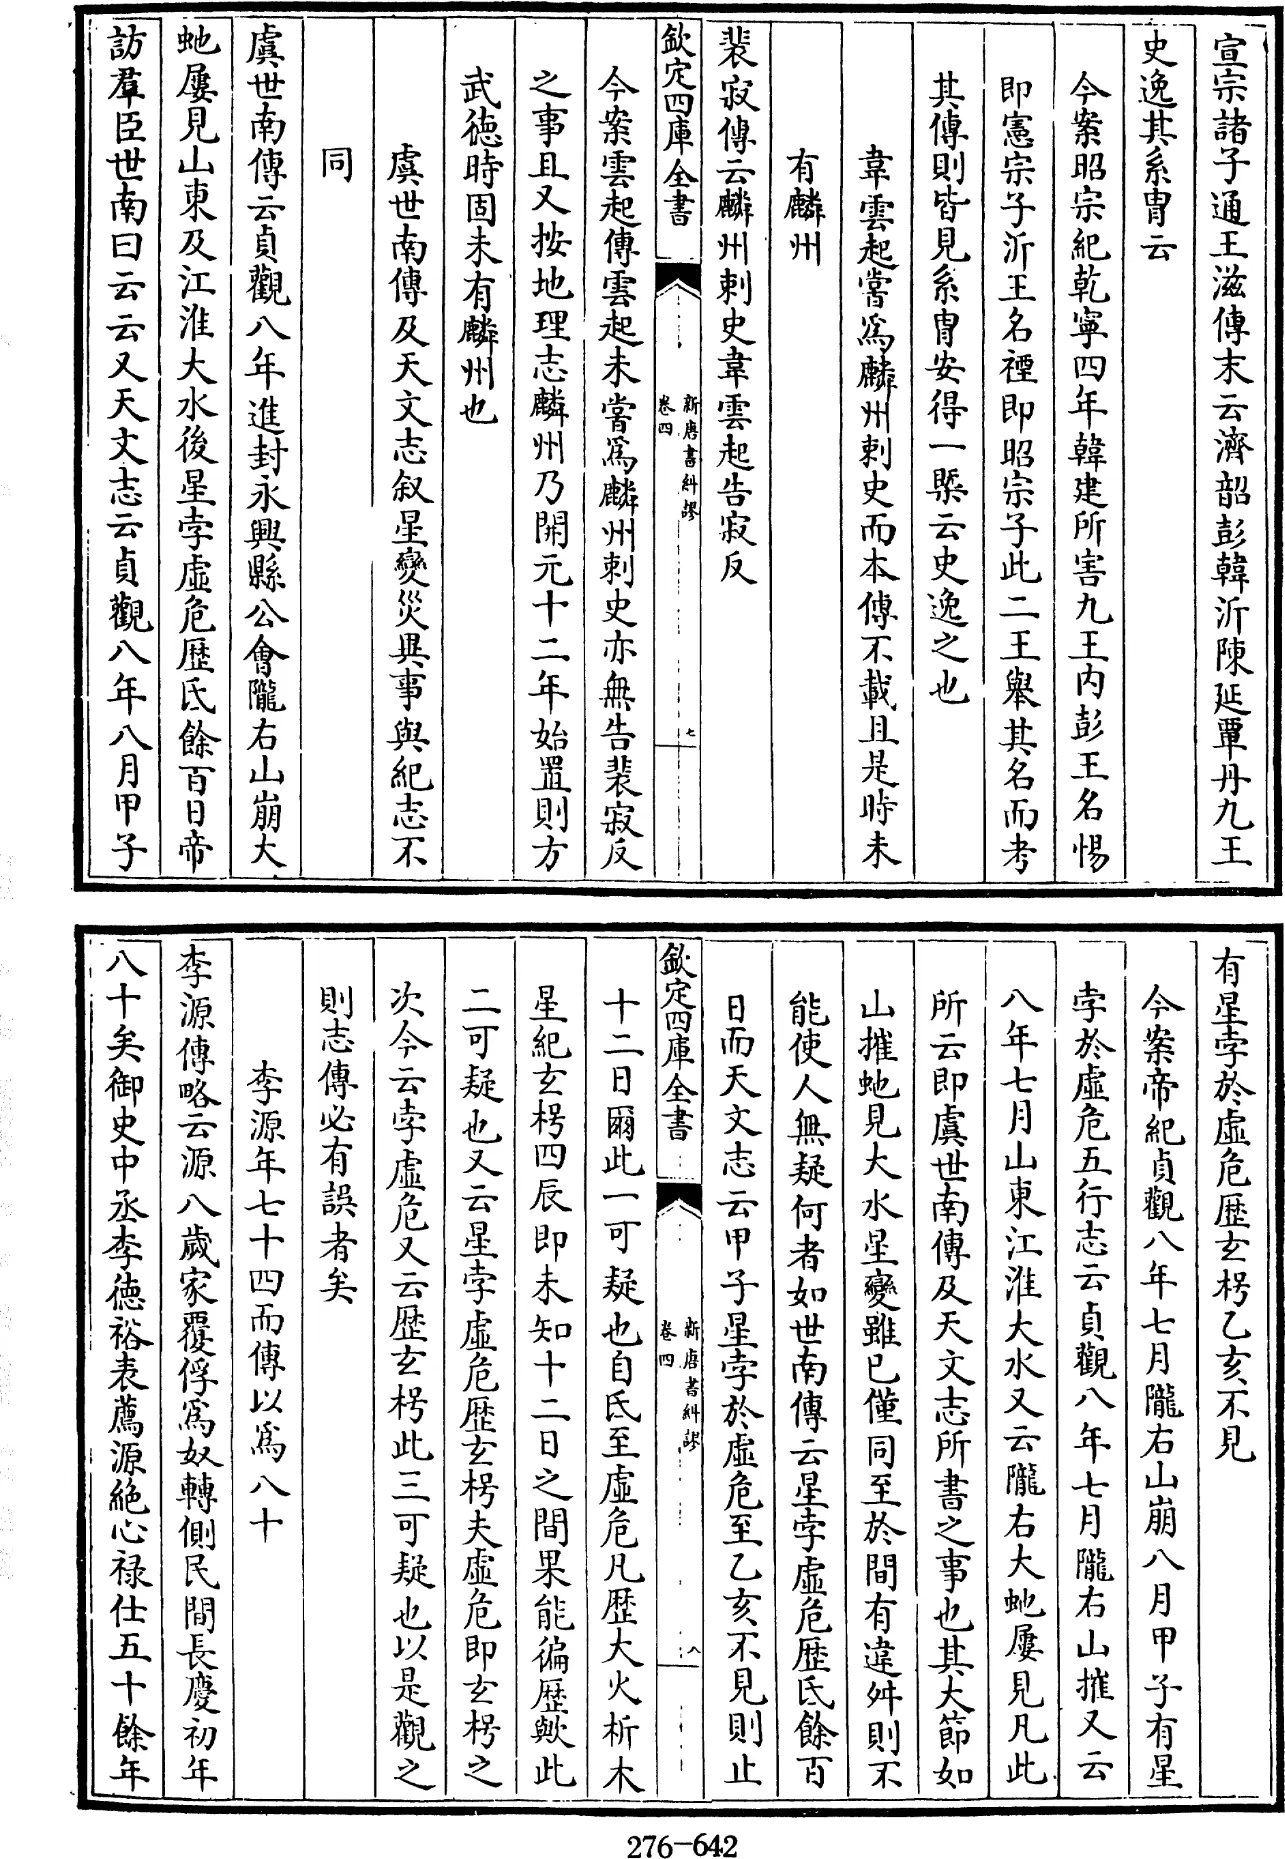 宣宗諸子通王滋傳末云濟韶彭韓沂陳延覃丹九王
史逸其系胄云
今案昭宗紀乾寧四年韓建所害九王内彭王名惕
即憲宗子沂王名禋即昭宗子此二王舉其名而考
其傳則皆見系胄安得一槩云史逸之也
韋雲起嘗為麟州刺史而本傳不載且是時未
有麟州
裴寂傳云麟州刺史韋雲起告寂反
欽定四庫全書
新唐書糾謬
卷四
七
今案雲起傳雲起未嘗為麟州刺史亦無告裴寂反
之事且又按地理志麟州乃開元十二年始置則方
武徳時固未有麟州也
虞世南傳及天文志叙星變災異事與紀志不
同
虞世南傳云貞觀八年進封永興縣公會隴右山崩大
虵屢見山東及江淮大水後星孛虛危歴氐餘百日帝
訪羣臣世南曰云云又天文志云貞觀八年八月甲子
有星孛於虛危歴玄枵乙亥不見
今案帝紀貞觀八年七月隴右山崩八月甲子有星
孛於虛危五行志云貞觀八年七月隴右山摧又云
八年七月山東江淮大水又云隴右大虵屢見凡此
所云即虞世南傳及天文志所書之事也其大節如
山摧虵見大水星變雖已僅同至於間有違舛則不
能使人無疑何者如世南傳云星孛虛危歴氐餘百
日而天文志云甲子星孛於虛危至乙亥不見則止
欽定四庫全書
新唐書糾謬
卷四
八
十二日爾此一可疑也自氐至虛危凡歴大火析木
星紀玄枵四辰即未知十二日之間果能徧歴歟此
二可疑也又云星孛虛危歴玄枵夫虛危即玄枵之
次今云孛虛危又云歴玄枵此三可疑也以是觀之
則志傳必有誤者矣
李源年七十四而傳以為八十
李源傳略云源八歲家覆俘為奴轉側民間長慶初年
八十矣御史中丞李徳裕表薦源絶心禄仕五十餘年
276-642